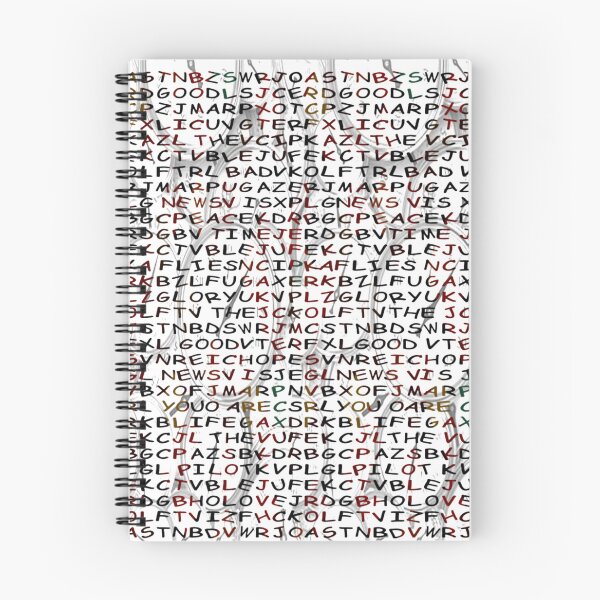 ASTNBZSWRJQASTNBZSWRJ
RDGOODLSJCERDGOODLSJC
CPZJMARPXOTCPZJMARPXO
FXLICUVGTERFXLICUVGTE
KAZL THEVCIPKAZLTHEVCI
KCTVBLEJUFEKCTVBLEJU
OLFTRLBADVKOLFTRLBADV
RJMARPUGAZERJMARPUGAZ
LGNEWSVISXPLGNEWSVISX
BGCPEACEKDRBGCPEACEKD
RDGBVTIMEJERDGBVTIMEJ
KCTVBLEJUFEKCTVBLEJU
KAFLIESNCIPKAFLIESNCI
RKBZLFUGAXERKBZLFUGAX
LZGLORYUKVPLZGLORYUKV
OLFTV THEJCKOLFTVTHEJC
CSTNBDSWRJMCSTNBDSWRJ
FXLGOODVTERFXLGOODVTE
SVNREICHOPESVNREICHOP
GLNEWSVISJEGLNEWSVISJ
VBXOFJMARPNVBXOFJMARP
RLYOUOARECSRLYOUOAREC
RKBLIFEGAXDRKBLIFEGAX
EKCJL THEVUFEKCJLTHEVU
BGCPAZSBKDRBGCPAZSBKD
GLPILOTKVPGLPILOTKV
KCTVBLEJUFEKCTVBLEJU
RDGBHOLOVEJRDGBHOLOVE
OLFTVIZFHCKOLFTVIZFHC
ASTNBDVWRJOASTNBDVWRJ